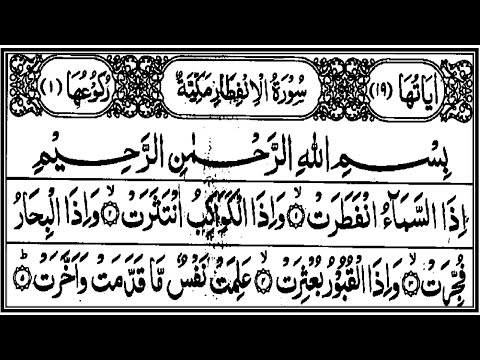 اٰيَاتُهَا (١٩) سُوْرَةُ الْاِنْفِطَارِ مَكِّيَّةٌ رُكُوْعُهَا (١)
بِسْمِ اللّٰهِ الرَّحْمٰنِ الرَّحِيْمِ
اِذَا السَّمَآءُ انْفَطَرَتْ ۙ﴿١﴾ وَاِذَا الْكَوَاكِبُ انْتَثَرَتْ ۙ﴿٢﴾ وَاِذَا الْبِحَارُ
فُجِّرَتْ ۙ﴿٣﴾ وَاِذَا الْقُبُوْرُ بُعْثِرَتْ ۙ﴿٤﴾ عَلِمَتْ نَفْسٌ مَّا قَدَّمَتْ وَاَخَّرَتْ ؕ﴿٥﴾